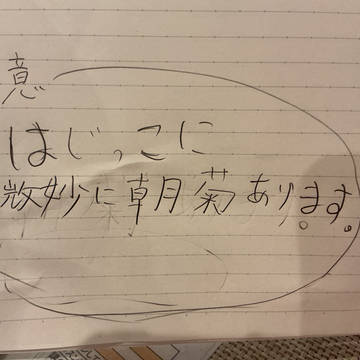 意
はじっこに
微妙に朝月菊あります。